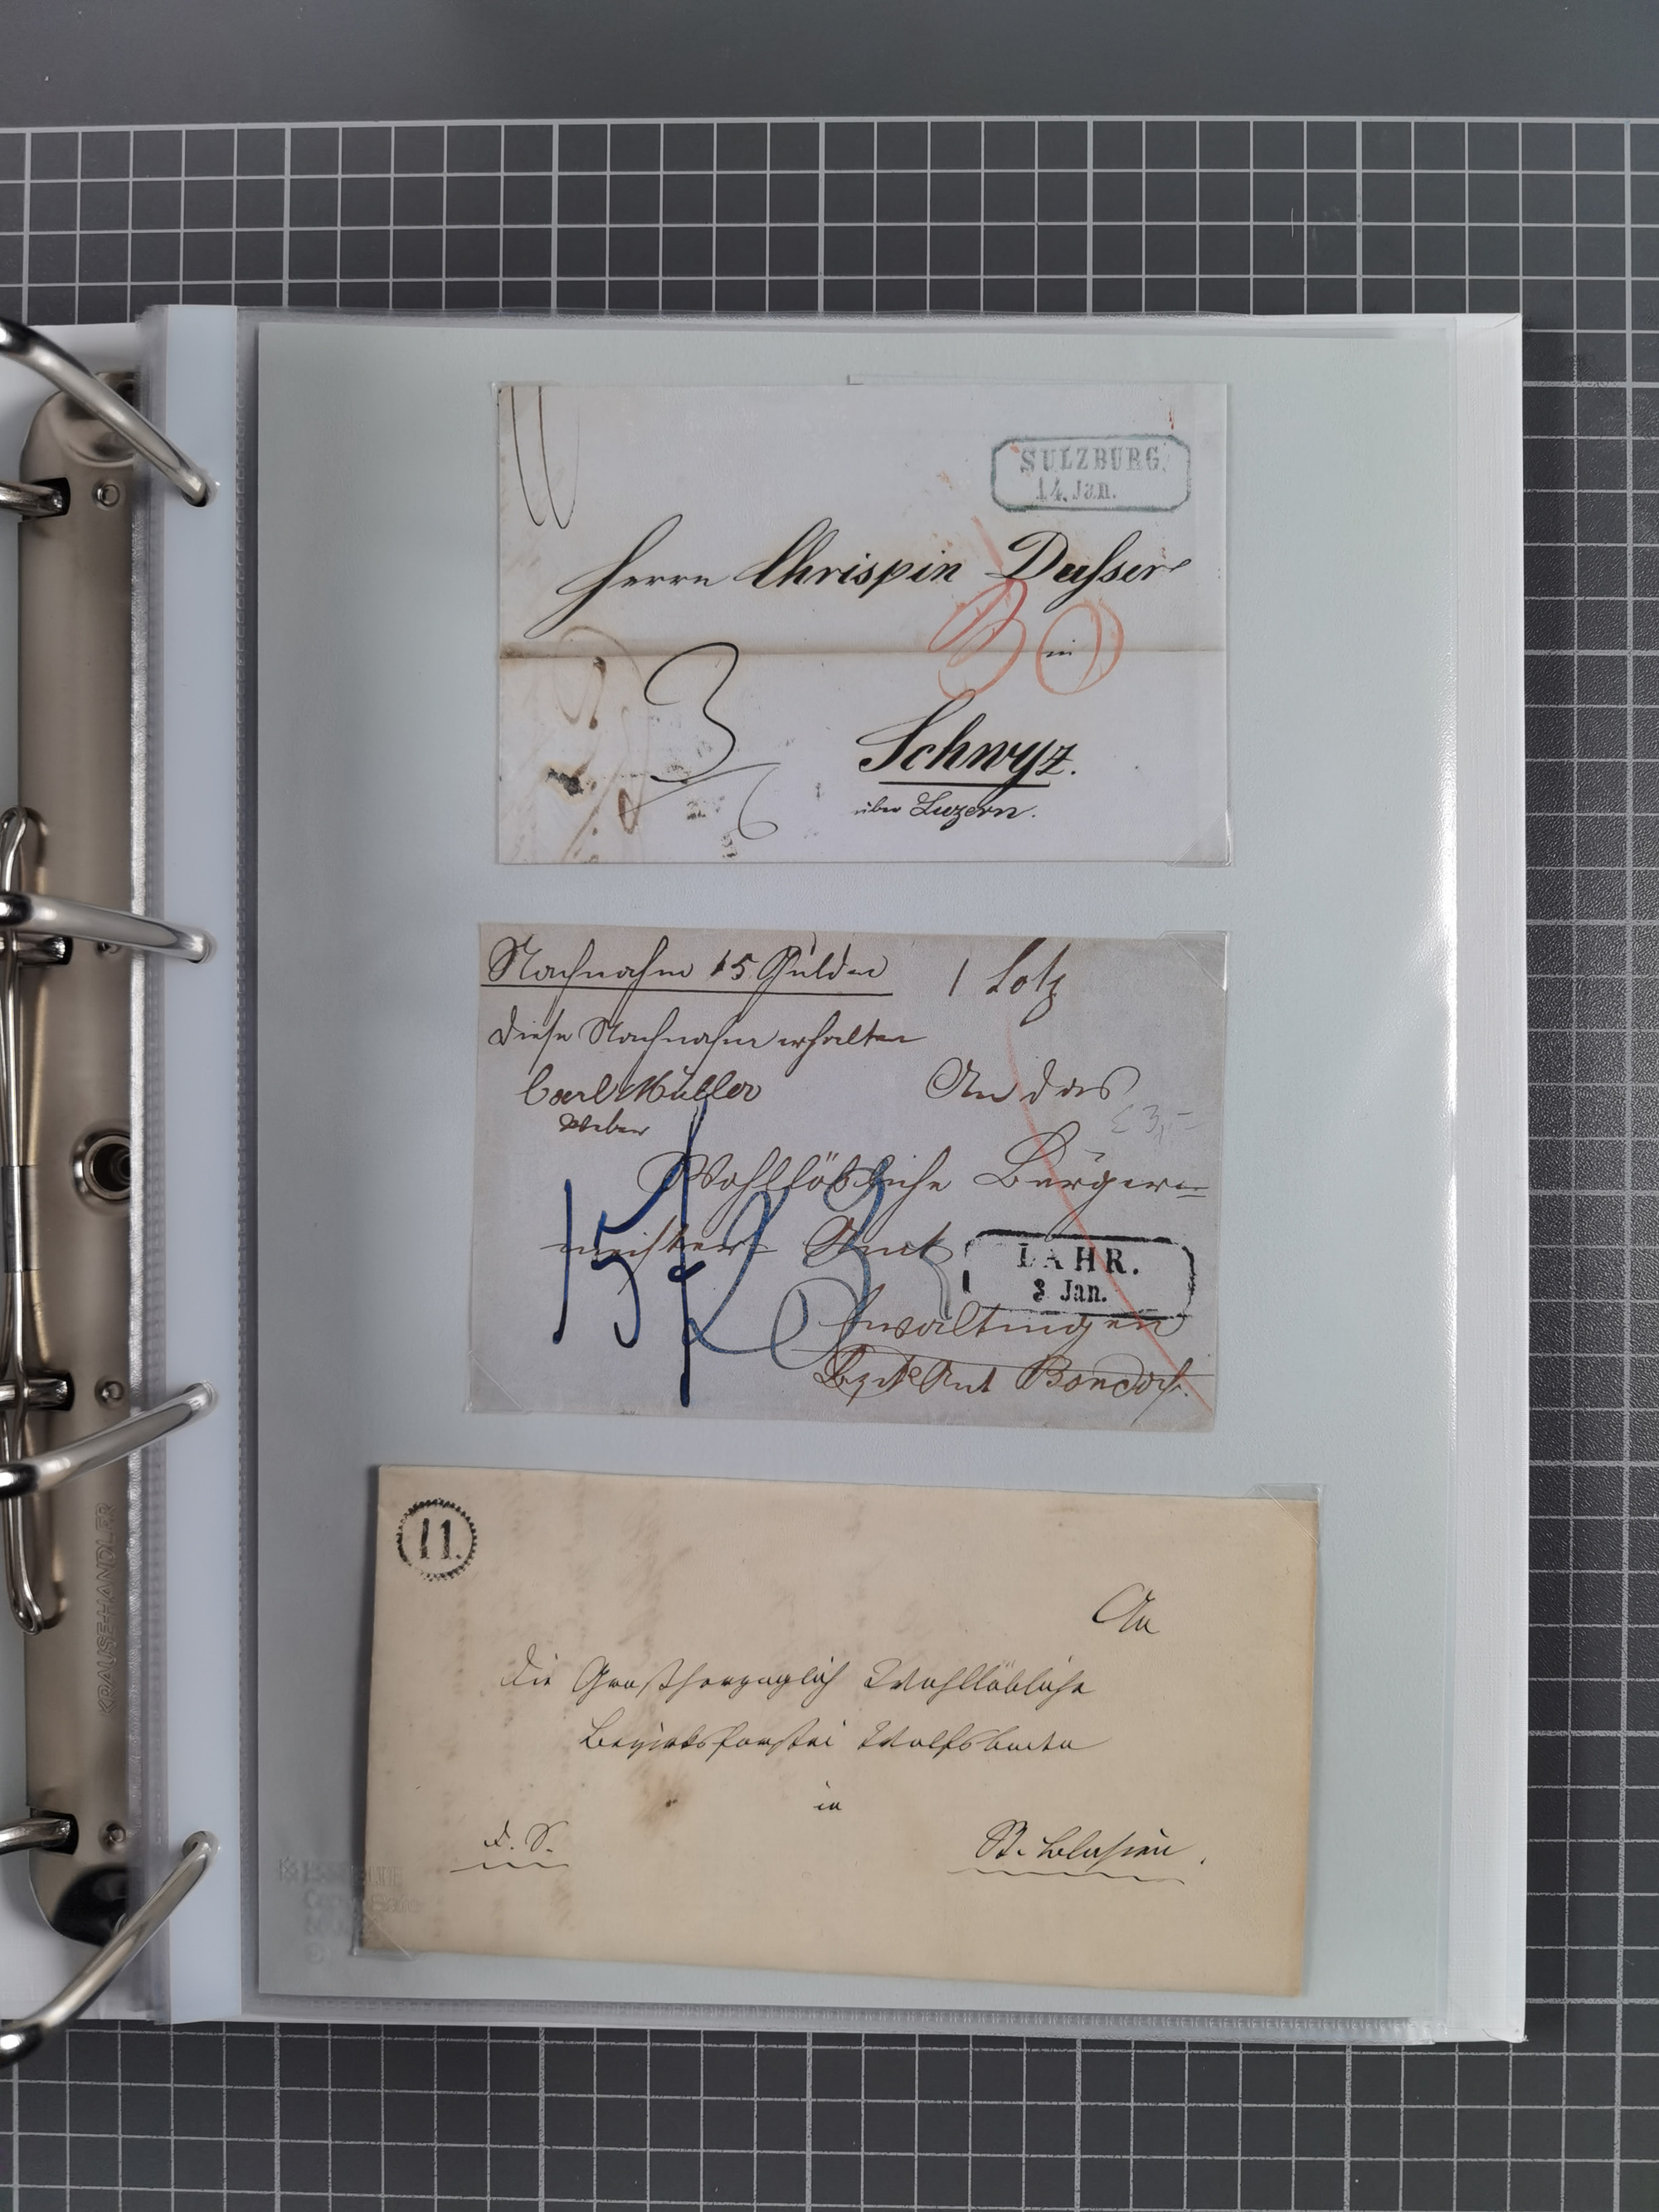 SULZBURG.
14. Jan.
Herrn Chrispin Dusser
in
Schwyz.
über Luzern.
Nachnahm 15 Gulden
1 Loth
Diese Nachnahm erhalten
Carl Müller
Weber
An das
Wohllöbliche Bürger=
meister= Amt
15
LAHR.
3 Jan.
Ewattingen
Bezirks Amt Bondorf.
11.
An
die Großherzoglich Wohllöbliche
Bezirksforstei Wolfsboden
in
d. S.
St. Blasien.
KRAUSE-HANDLER